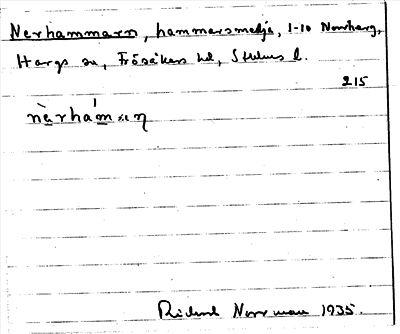 Nerhammarn, hammarsmedja, 1-10 Norrharg,
Hargs sn, Frösåkers hd, Sthlms l.
215
nàrhám:ən
Rickard Norrman 1935.